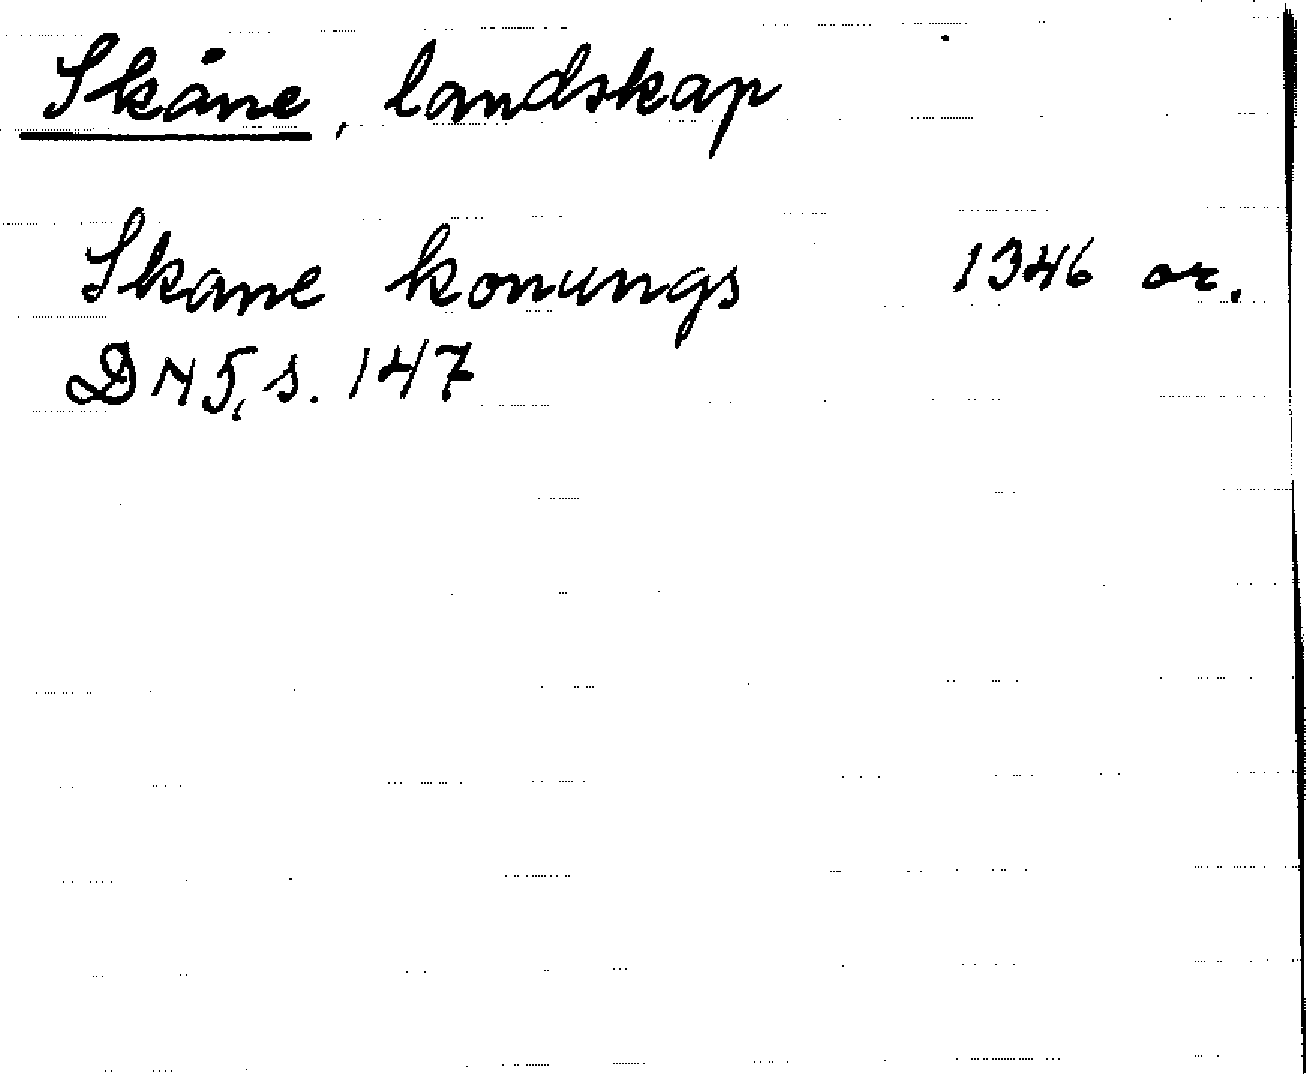 Skåne, landskap
Skane konungs 1346 or.
DN 5, s. 147